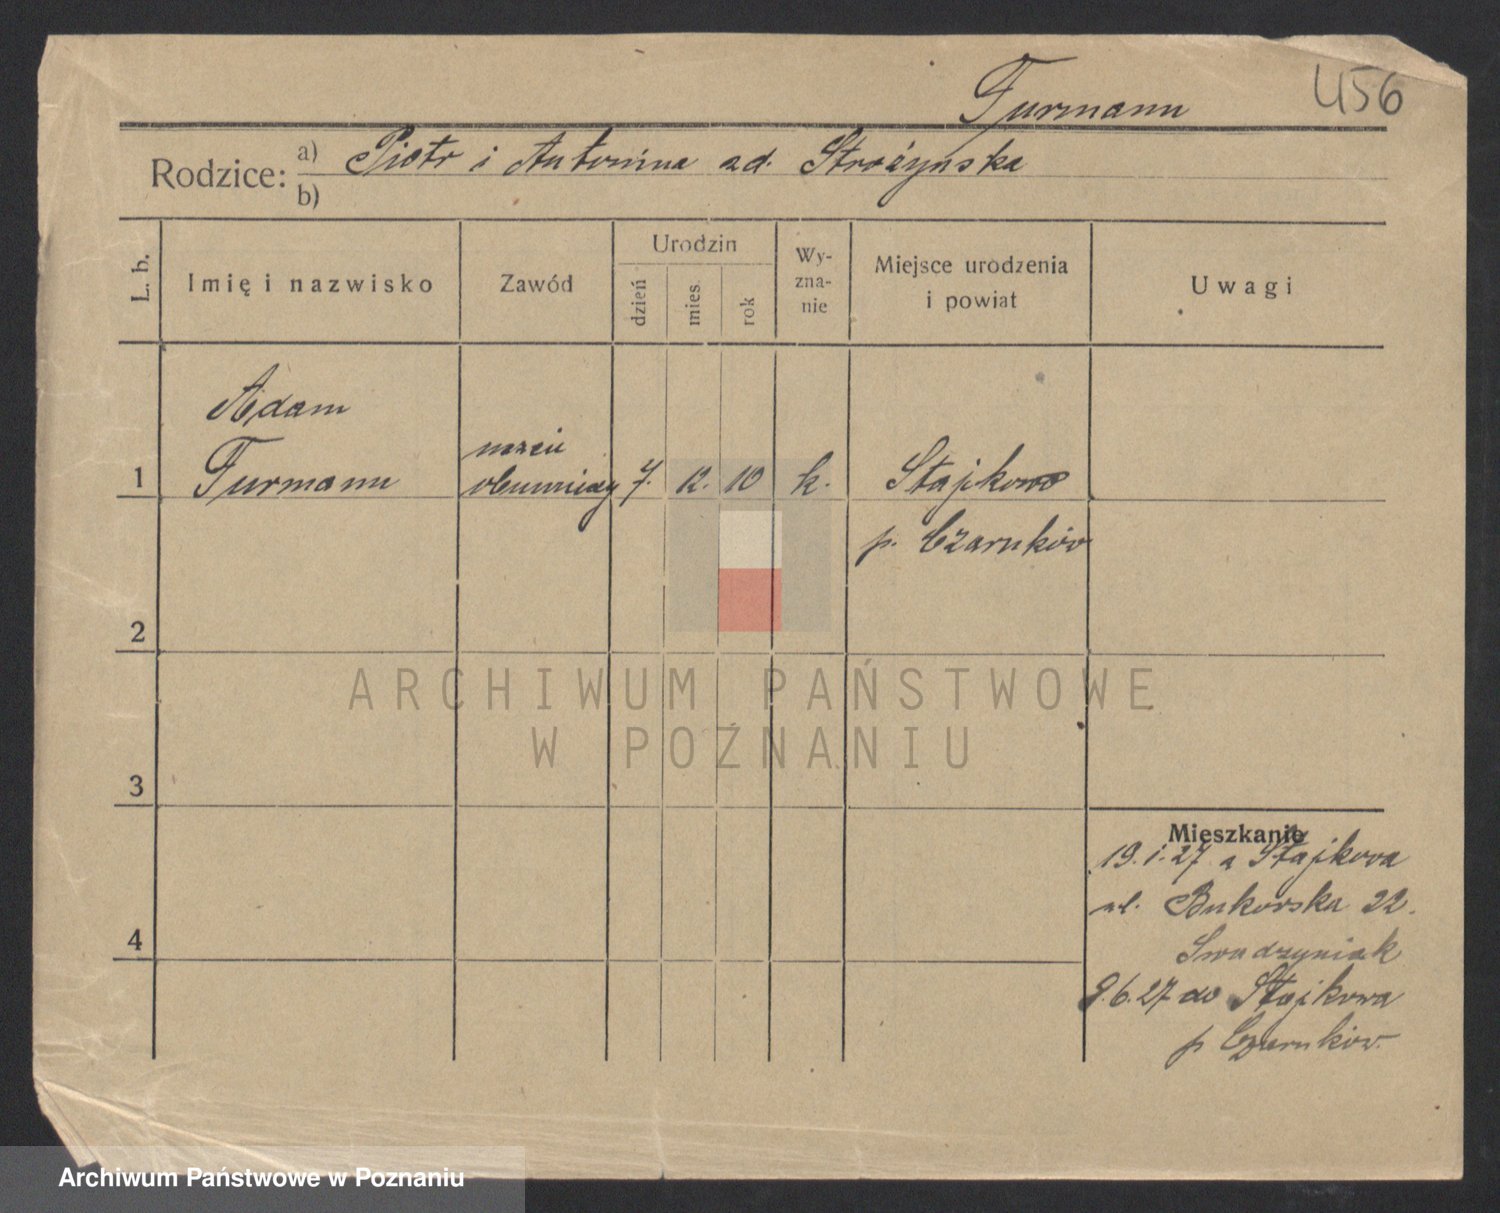 Furmann
456
Rodzice: a) Piotr i Antonina zd. Strożynska
b)
L. b.
Imię i nazwisko
Zawód
Urodzin
dzień
mies.
rok
Wy-
zna-
nie
Miejsce urodzenia
i powiat
Uwagi
Adam
1 Furmann
7. 12. 10 k. Stajkowo
p. Czarnków
2
ARCHIWUM PAŃSTWOWE
W POZNANIU
3
Mieszkanie
19.1.27 z Stajkova
ul. Bukowska 22.
4
9.6.27 do Stajkowa
p Czarnków.
Archiwum Państwowe w Poznaniu